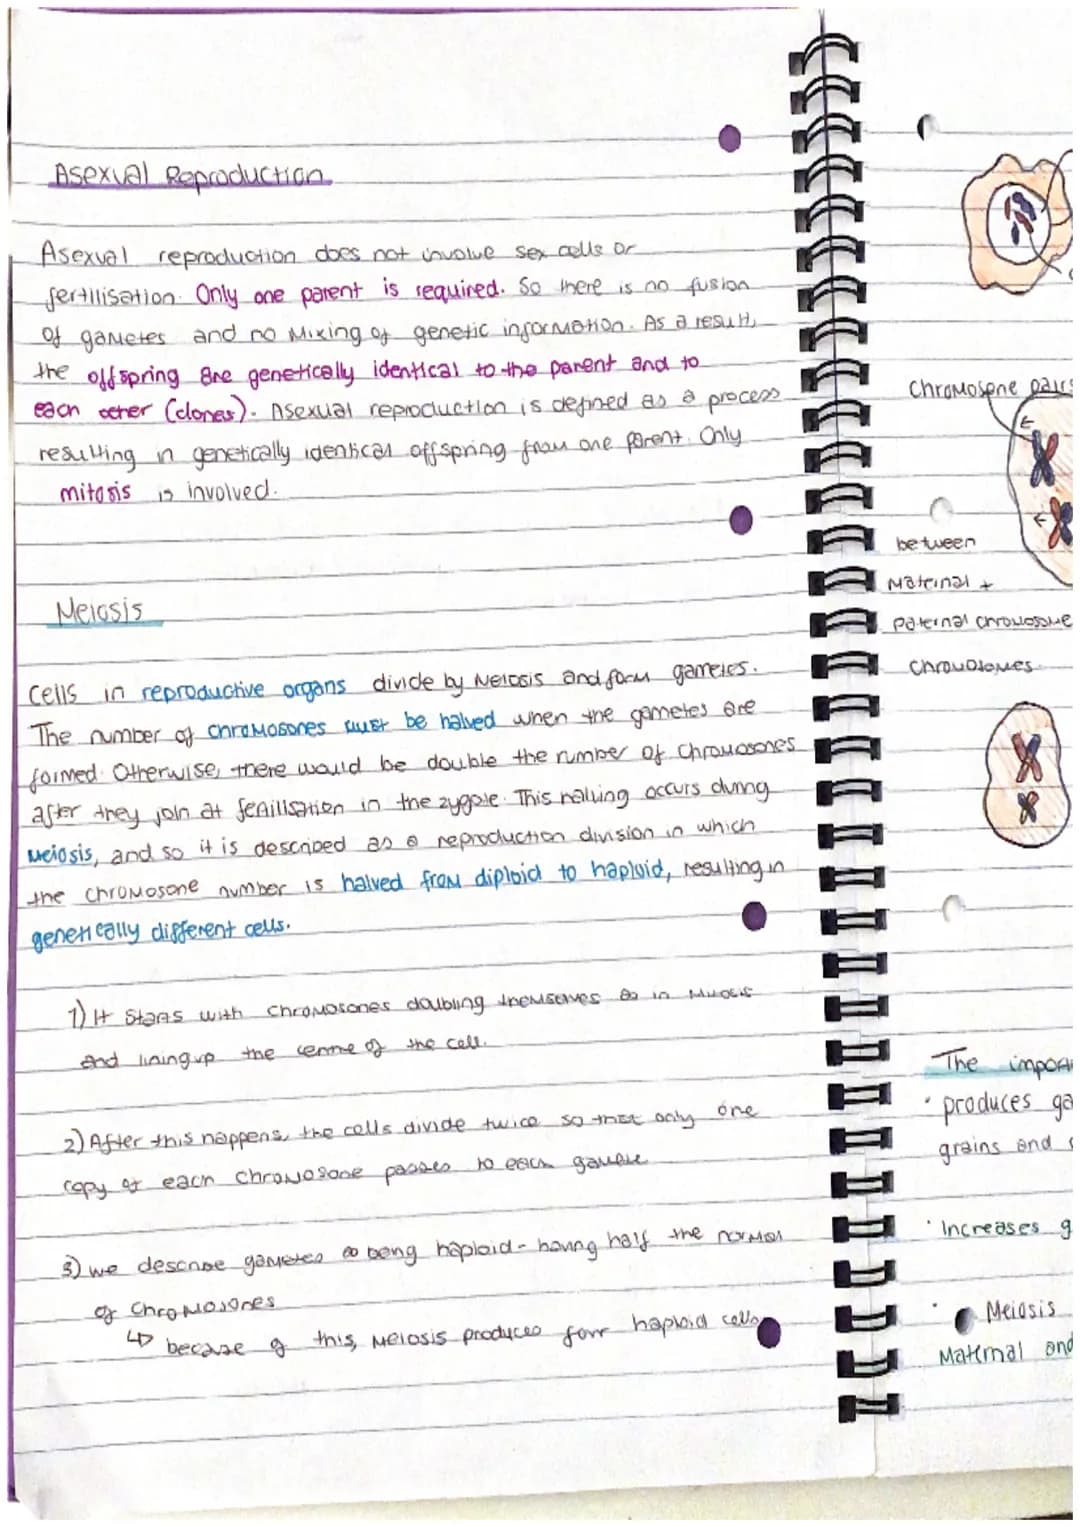 Asexual Reproduction
Asexual reproduction does not involve sex cells or
fertilisation. Only one parent is required. So there is no fusion
of gametes and no mixing of genetic information. As a result,
the offspring are genetically identical to the parent and to
each other (clones). Asexual reproduction is defined as a process
resulting in genetically identical offspring from one parent. Only
mitosis is involved.
Meiosis
Cells in reproductive organs divide by Meiosis and form gametes.
The number of chromosones must be halved when the gametes are
formed. Otherwise, there would be double the number of chromosones
after they join at fertilisation in the zygote. This halving occurs during
meiosis, and so it is described as a reproduction division in which
the chromosone number is halved from diploid to haploid, resulting in
genetically different cells.
1) It starts with chromosones doubling themselves as in mitosis
and lining up the centre of the cell.
2) After this happens, the cells divide twice so that only one
copy of each chromosone passes to each gamete
3) we describe gametes as being haploid - having half the normal
of chromosones
↳ because of this, Meiosis produces four haploid cells
Chromosone pairs
between
Maternal +
paternal chromosome
chromosomes
The
• produces
grains and
• Increases
• Meiosis
Maternal and